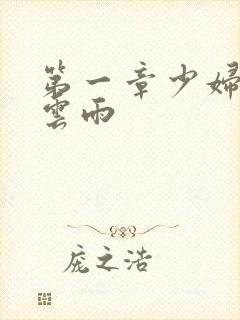 第一章少婦
雲雨
庞之浩